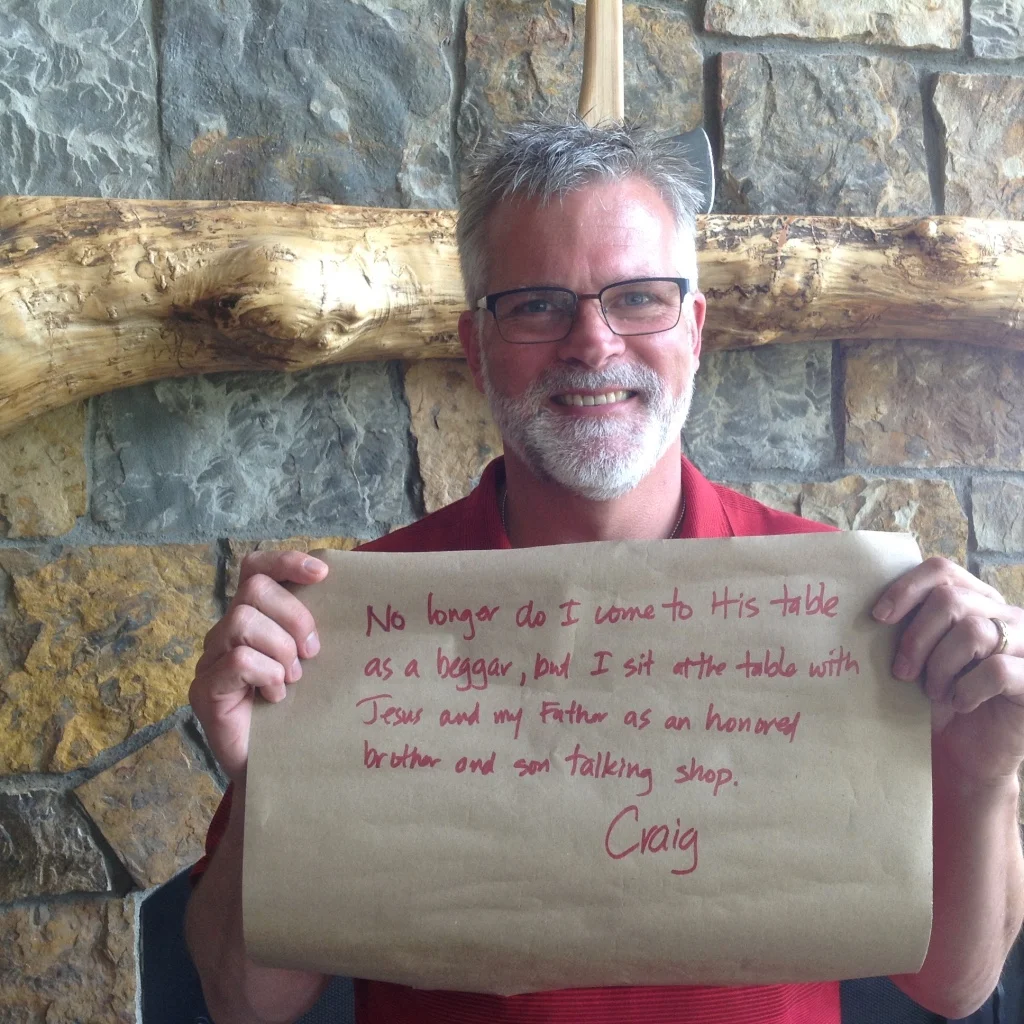 No longer do I come to His table
as a beggar, but I sit at the table with
Jesus and my Father as an honored
brother and son talking shop.
Craig